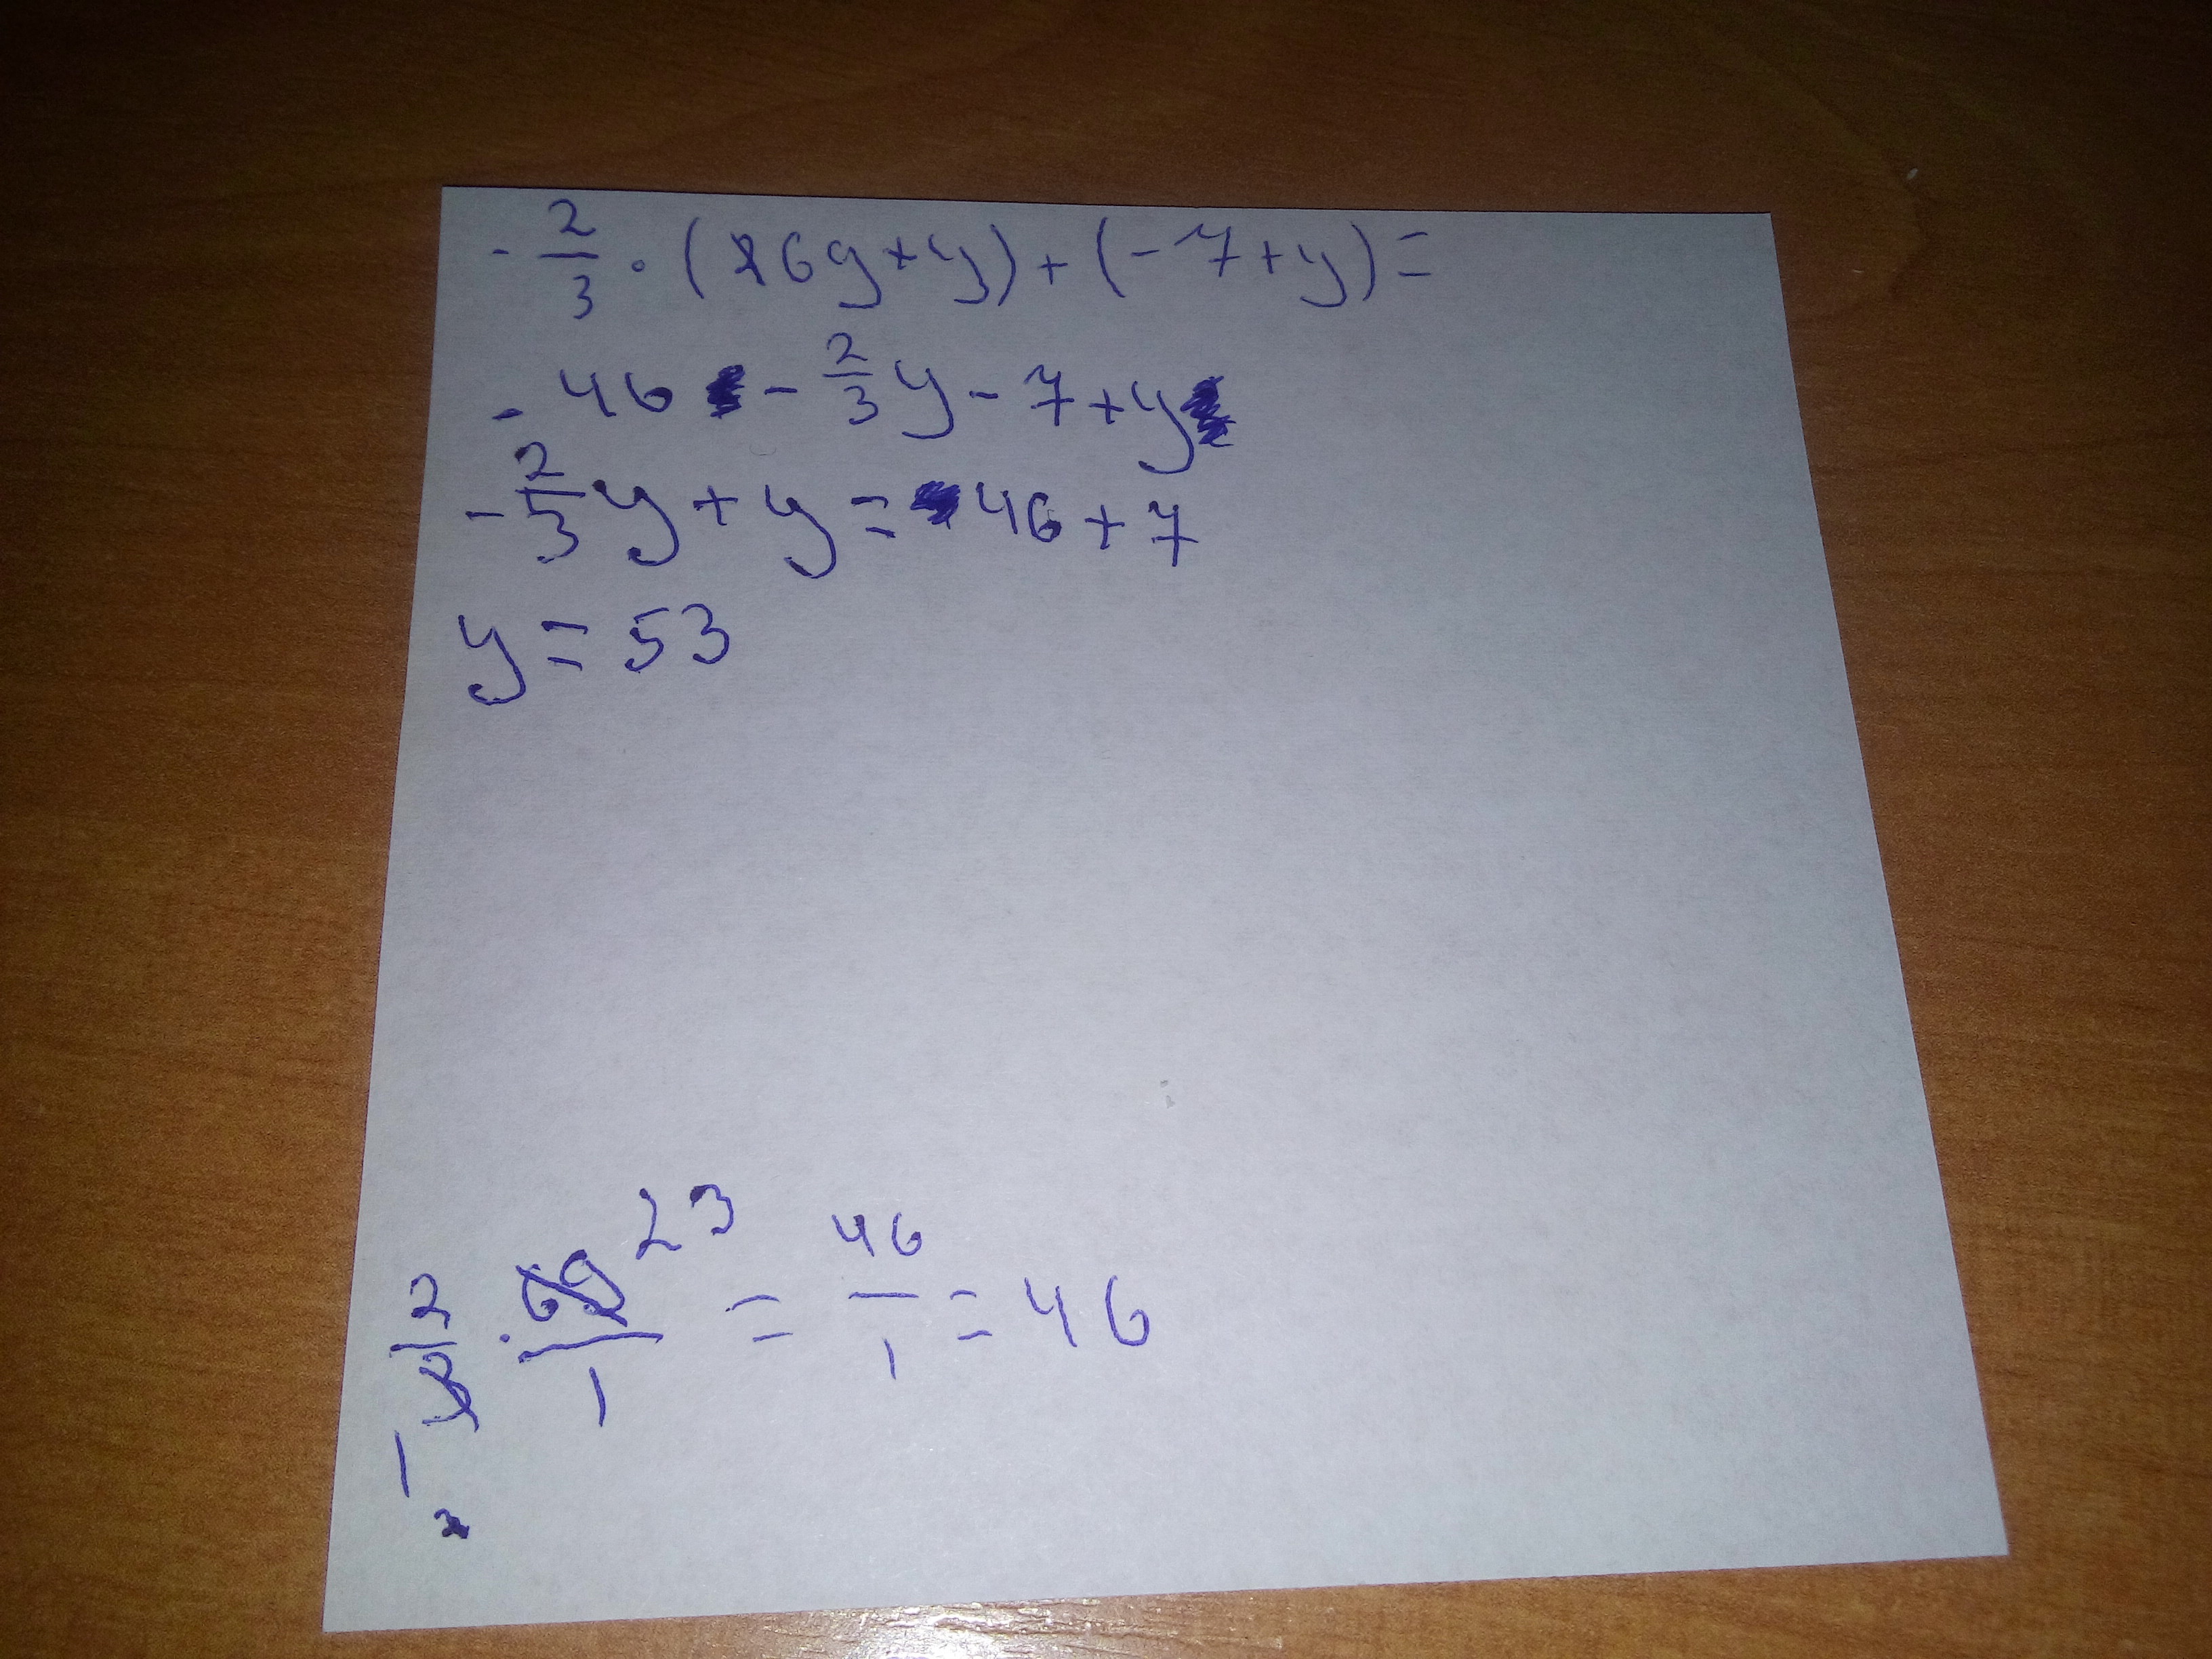 - 2/3 · (69+y)+(-7+y)=
- 46 - 2/3 y - 7 + y
- 2/3 y + y = 46 + 7
y = 53
- 2/3 · 69/1 23 = 46/1 = 46
1